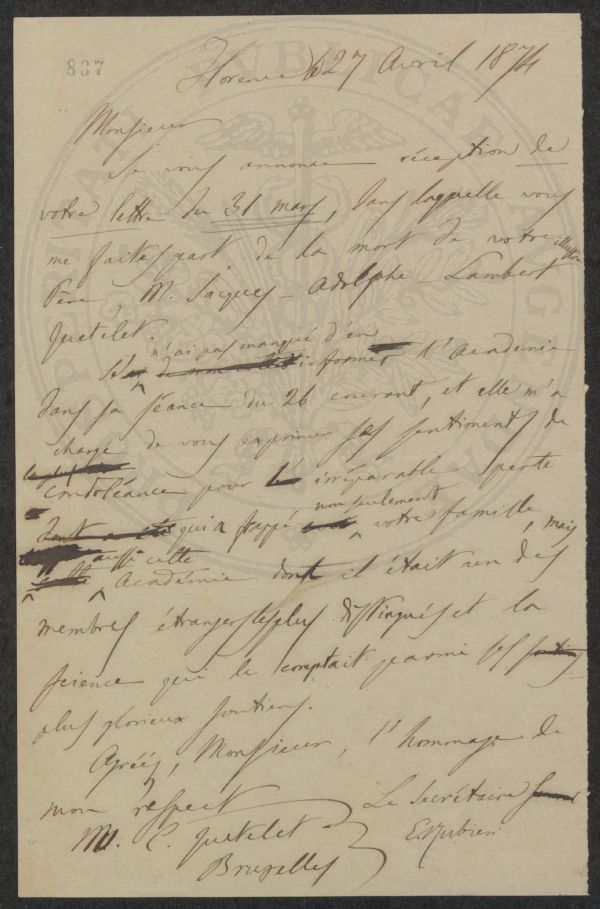 837
Florence 27 Avril 1874
Monsieur
Je vous annonce réception de
votre lettre du 31 mars, dans laquelle vous
me faites part de la mort de votre illustre
Père, M. Jacques-Adolphe-Lambert
Quételet.
Je n'ai pas manqué d'en
informer l'Académie
dans sa séance du 26 courant, et elle m'a
chargé de vous exprimer ses sentiments de
condoléance pour irréparable perte
qui a frappé non seulement votre famille, mais
aussi cette
Académie dont il était un des
membres étrangers les plus distingués et la
science qui le comptait parmi ses
plus glorieux soutiens.
Agréez, Monsieur, l'hommage de
mon respect
Le Secrétaire
M. E. Quetelet
Bruxelles